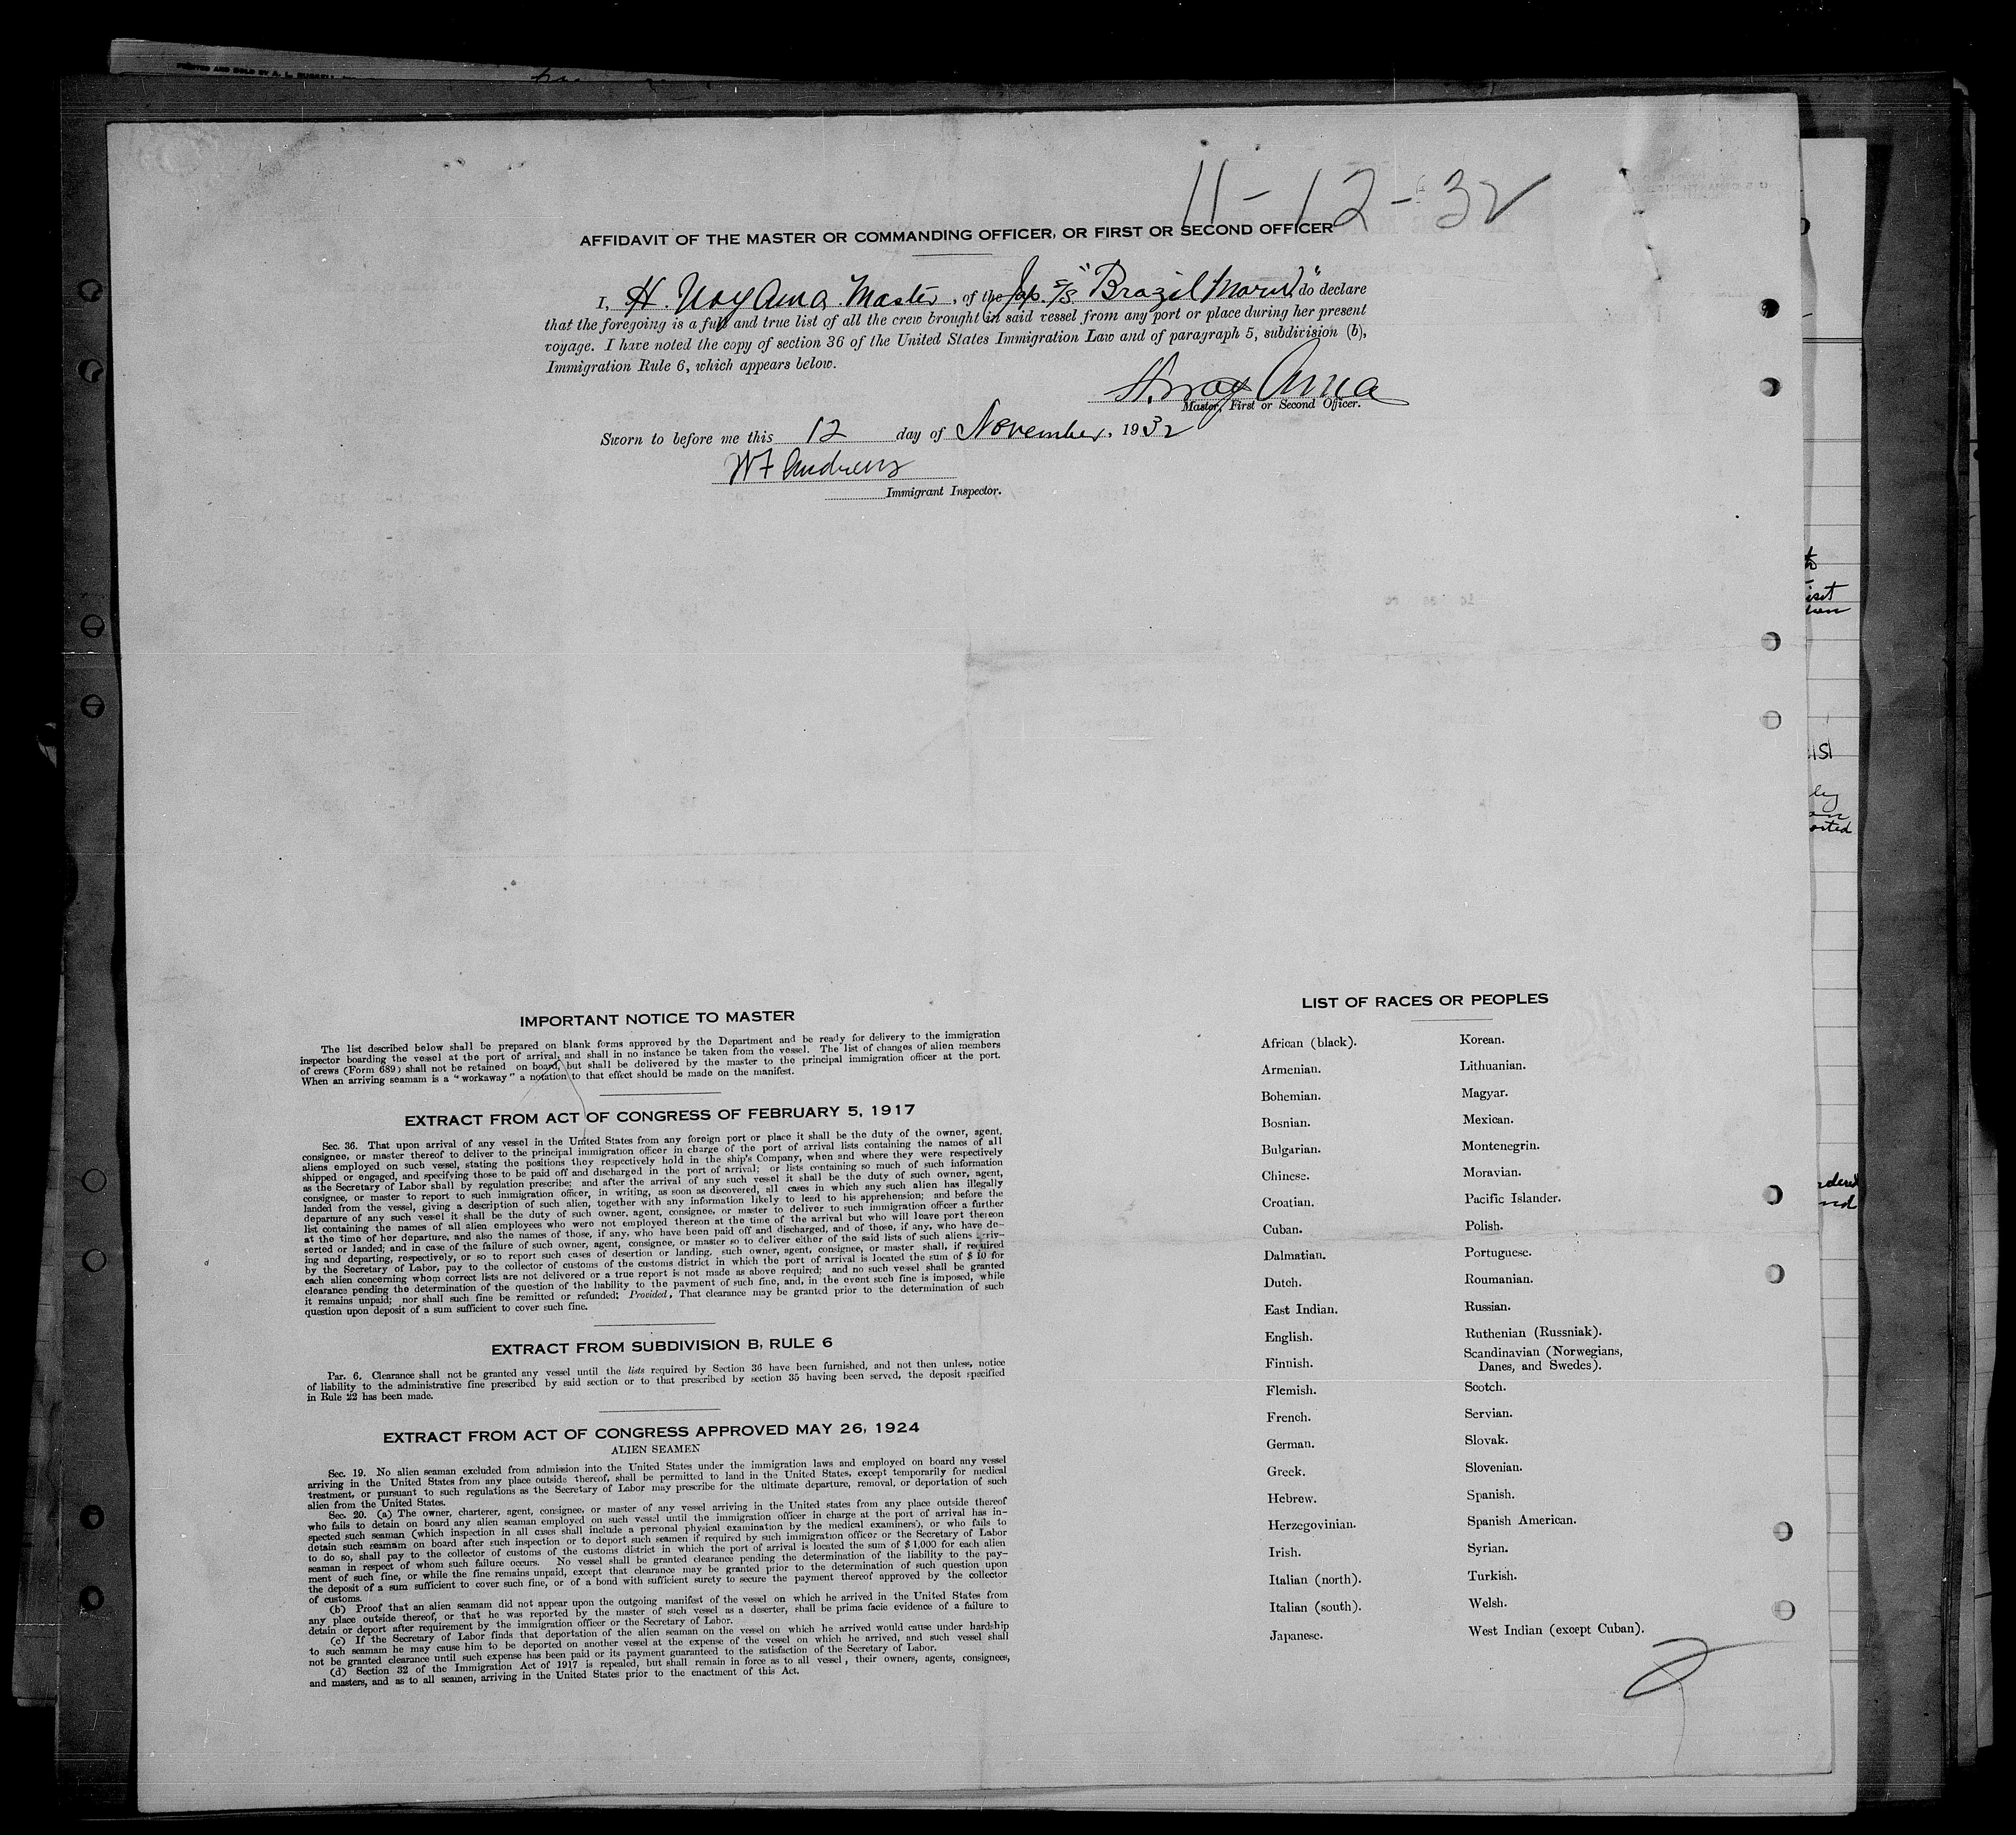 PRINTED AND SOLD BY A. L. RUSSELL
11-12-32
AFFIDAVIT OF THE MASTER OR COMMANDING OFFICER, OR FIRST OR SECOND OFFICER
I, H. Uoyama Master, of the Jap. S/S "Brazil Maru", do declare
that the foregoing is a full and true list of all the crew brought in said vessel from any port or place during her present
voyage. I have noted the copy of section 36 of the United States Immigration Law and of paragraph 5, subdivision (b),
Immigration Rule 6, which appears below.
Master, First or Second Officer.
Sworn to before me this 12 day of November, 1932
W F Andrews
Immigrant Inspector.
IMPORTANT NOTICE TO MASTER
The list described below shall be prepared on blank forms approved by the Department and be ready for delivery to the immigration
inspector boarding the vessel at the port of arrival, and shall in no instance be taken from the vessel. The list of changes of alien members
of crews (Form 689) shall not be retained on board, but shall be delivered by the master to the principal immigration officer at the port.
When an arriving seamam is a "workaway" a notation to that effect should be made on the manifest.
EXTRACT FROM ACT OF CONGRESS OF FEBRUARY 5, 1917
Sec. 36. That upon arrival of any vessel in the United States from any foreign port or place it shall be the duty of the owner, agent,
consignee, or master thereof to deliver to the principal immigration officer in charge of the port of arrival lists containing the names of all
aliens employed on such vessel, stating the positions they respectively hold in the ship's Company, when and where they were respectively
shipped or engaged, and specifying those to be paid off and discharged in the port of arrival; or lists containing so much of such information
as the Secretary of Labor shall by regulation prescribe; and after the arrival of any such vessel it shall be the duty of such owner, agent,
consignee, or master to report to such immigration officer, in writing, as soon as discovered, all cases in which any such alien has illegally
landed from the vessel, giving a description of such alien, together with any information likely to lead to his apprehension; and before the
departure of any such vessel it shall be the duty of such owner, agent, consignee, or master to deliver to such immigration officer a further
list containing the names of all alien employees who were not employed thereon at the time of the arrival but who will leave port thereon
at the time of her departure, and also the names of those, if any, who have been paid off and discharged, and of those, if any, who have de-
serted or landed; and in case of the failure of such owner, agent, consignee, or master so to deliver either of the said lists of such aliens arriv-
ing and departing, respectively, or so to report such cases of desertion or landing, such owner, agent, consignee, or master shall, if required
by the Secretary of Labor, pay to the collector of customs of the customs district in which the port of arrival is located the sum of $ 10 for
each alien concerning whom correct lists are not delivered or a true report is not made as above required; and no such vessel shall be granted
clearance pending the determination of the question of the liability to the payment of such fine, and, in the event such fine is imposed, while
it remains unpaid; nor shall such fine be remitted or refunded: Provided, That clearance may be granted prior to the determination of such
question upon deposit of a sum sufficient to cover such fine.
EXTRACT FROM SUBDIVISION B, RULE 6
Par. 6. Clearance shall not be granted any vessel until the lists required by Section 36 have been furnished, and not then unless, notice
of liability to the administrative fine prescribed by said section or to that prescribed by section 35 having been served, the deposit specified
in Rule 22 has been made.
EXTRACT FROM ACT OF CONGRESS APPROVED MAY 26, 1924
ALIEN SEAMEN
Sec. 19. No alien seaman excluded from admission into the United States under the immigration laws and employed on board any vessel
arriving in the United States from any place outside thereof, shall be permitted to land in the United States, except temporarily for medical
treatment, or pursuant to such regulations as the Secretary of Labor may prescribe for the ultimate departure, removal, or deportation of such
alien from the United States.
Sec. 20. (a) The owner, charterer, agent, consignee, or master of any vessel arriving in the United states from any place outside thereof
who fails to detain on board any alien seaman employed on such vessel until the immigration officer in charge at the port of arrival has in-
spected such seaman (which inspection in all cases shall include a personal physical examination by the medical examiners), or who fails to
detain such seamam on board after such inspection or to deport such seamen if required by such immigration officer or the Secretary of Labor
to do so, shall pay to the collector of customs of the customs district in which the port of arrival is located the sum of $ 1,000 for each alien
seaman in respect of whom such failure occurs. No vessel shall be granted clearance pending the determination of the liability to the pay-
ment of such fine, or while the fine remains unpaid, except that clearance may be granted prior to the determination of such question upon
the deposit of a sum sufficient to cover such fine, or of a bond with sufficient surety to secure the payment thereof approved by the collector
of customs.
(b) Proof that an alien seamam did not appear upon the outgoing manifest of the vessel on which he arrived in the United States from
any place outside thereof, or that he was reported by the master of such vessel as a deserter, shall be prima facie evidence of a failure to
detain or deport after requirement by the immigration officer or the Secretary of Labor.
(c) If the Secretary of Labor finds that deportation of the alien seaman on the vessel on which he arrived would cause under hardship
to such seamam he may cause him to be deported on another vessel at the expense of the vessel on which he arrived, and such vessel shall
not be granted clearance until such expense has been paid or its payment guaranteed to the satisfaction of the Secretary of Labor.
(d) Section 32 of the Immigration Act of 1917 is repealed, but shall remain in force as to all vessel, their owners, agents, consignees,
and masters, and as to all seamen, arriving in the United States prior to the enactment of this Act.
LIST OF RACES OR PEOPLES
African (black).
Armenian.
Bohemian.
Bosnian.
Bulgarian.
Chinese.
Croatian.
Cuban.
Dalmatian.
Dutch.
East Indian.
English.
Finnish.
Flemish.
French.
German.
Greek.
Hebrew.
Herzegovinian.
Irish.
Italian (north).
Italian (south).
Japanese.
Korean.
Lithuanian.
Magyar.
Mexican.
Montenegrin.
Moravian.
Pacific Islander.
Polish.
Portuguese.
Roumanian.
Russian.
Ruthenian (Russniak).
Scandinavian (Norwegians,
Danes, and Swedes).
Scotch.
Servian.
Slovak.
Slovenian.
Spanish.
Spanish American.
Syrian.
Turkish.
Welsh.
West Indian (except Cuban).